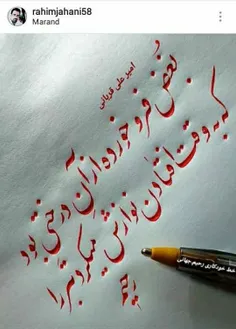 rahimjahani58
Marand
امیر علی قربانی
بُغض فرو خورده از آنِ درختی بود
که به وقت افتادن نوازش میکرد تبر را
خط خودکاری رحیم جهانی